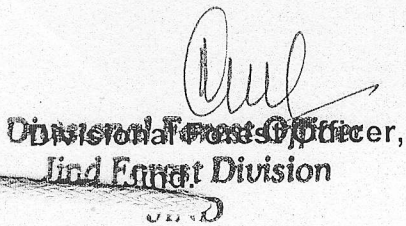 Divisional Forest Officer,
Jind Forest Division
Jind.
JIND